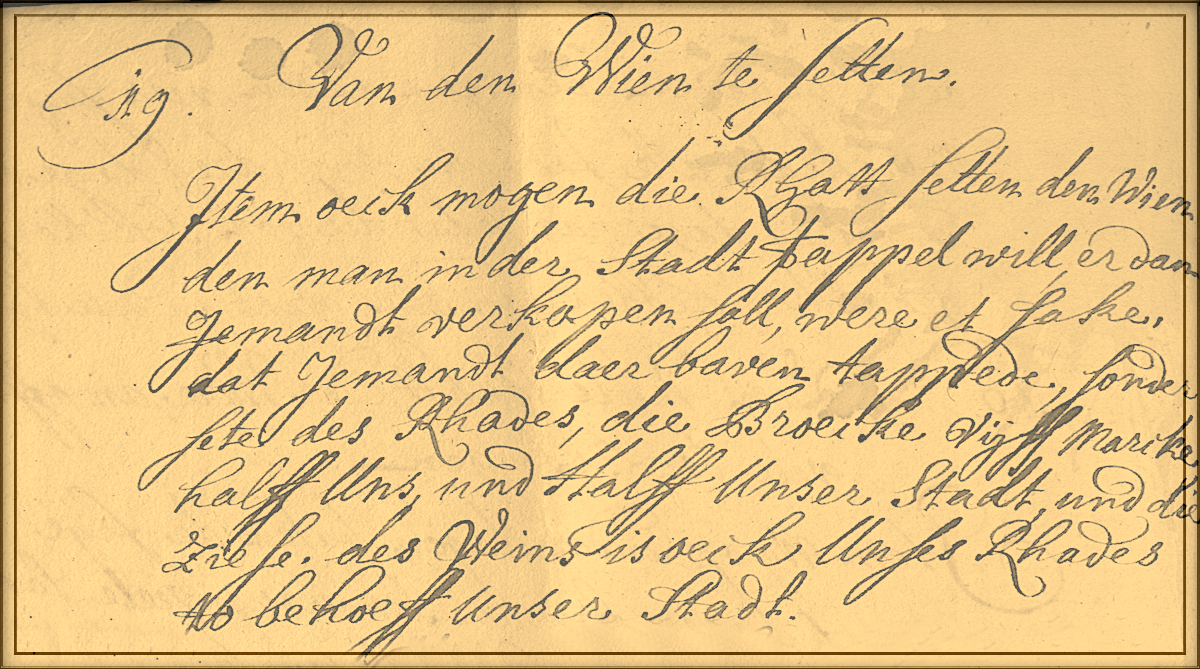 19. Van den Wien te setten.
Jtem oeck mogen die Rhatt setten den Wien
den man in der Stadt tappel will, er dan
Jemandt verkopen soll, were et sake,
dat Jemandt daer baven tappede, sonder
sete des Rhades, die Broecke vijff Marcke
halff Uns, und Halff Unser Stadt, und die
ziese. des Weins is oeck Unses Rhades
to behoeff Unser Stadt.